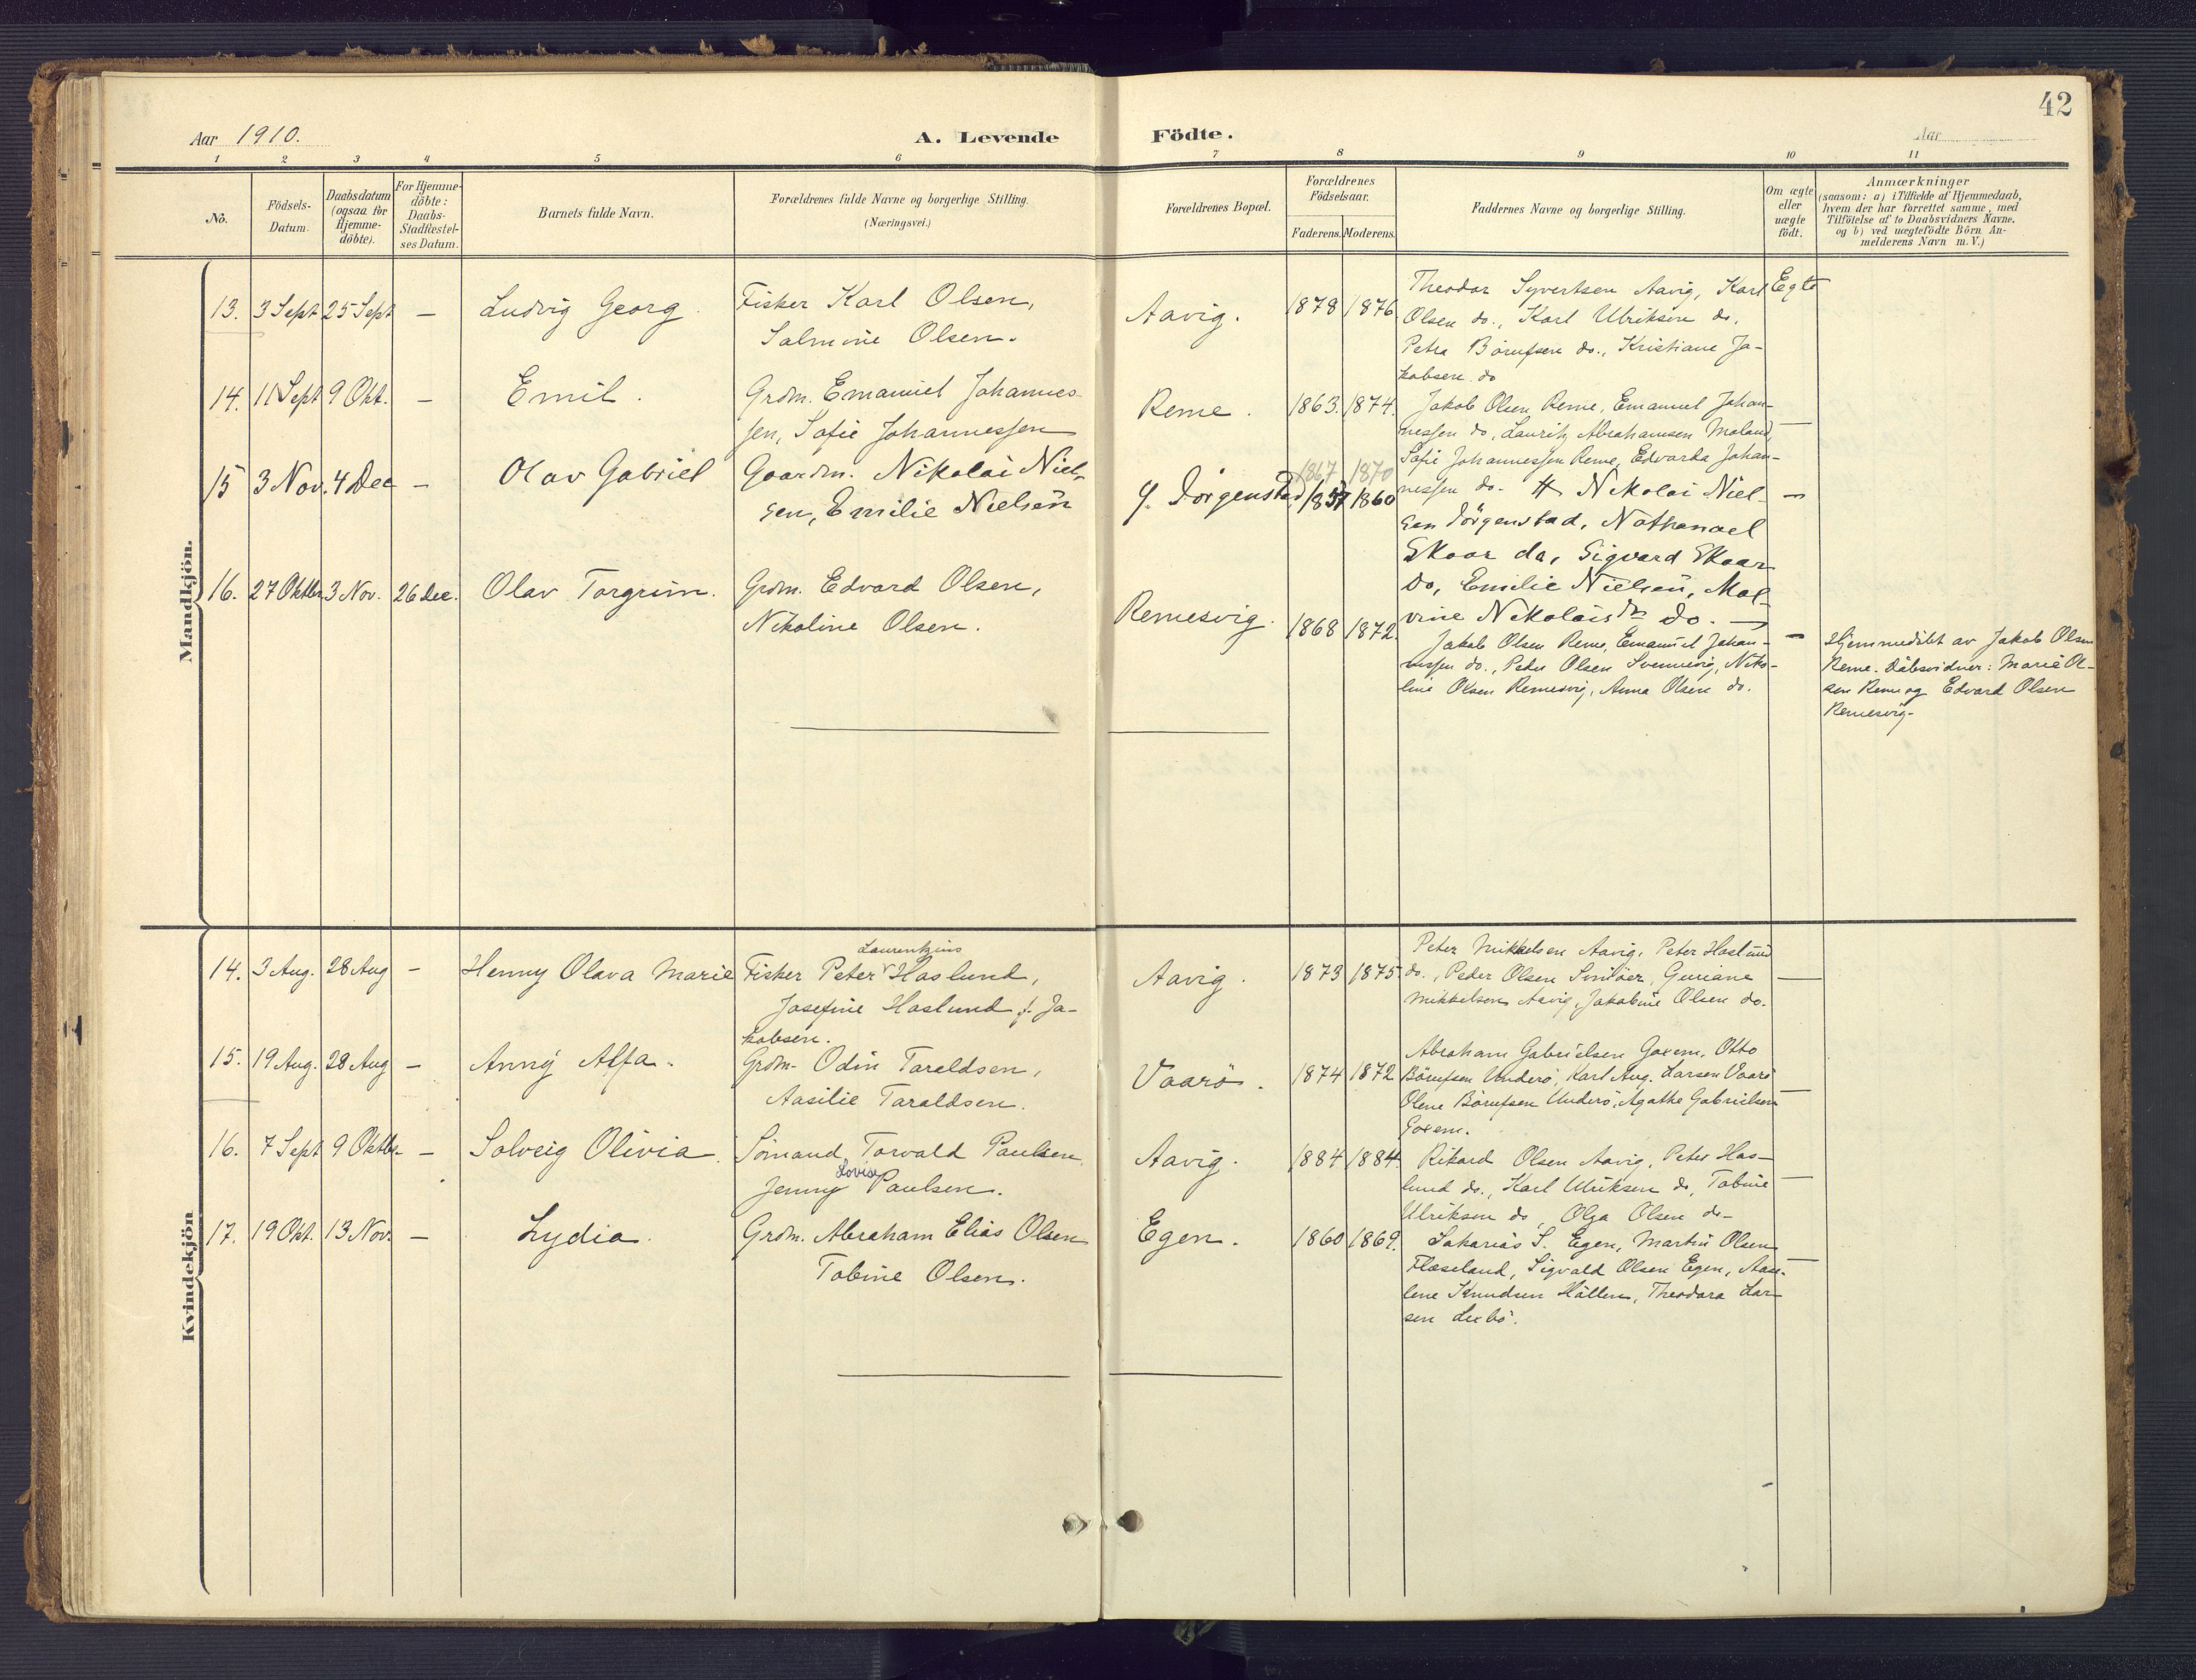 42
Aar 1910.
A. Levende Födte.
Aar
1 2 3 4 5 6 7 8 9 10 11
No.
Födsels-
Datum.
Daabsdatum
(ogsaa for
Hjemme-
döbte).
For Hjemme-
döbte:
Daabs-
Stadfæstel-
ses Datum.
Barnets fulde Navn.
Forældrenes fulde Navne og borgerlige Stilling.
(Næringsvei.)
Forældrenes Bopæl.
Forældrenes
Födselsaar.
Faderens. Moderens.
Faddernes Navne og borgerlige Stilling.
Om ægte
eller
uægte
födt.
Anmærkninger
(saasom: a) i Tilfælde af Hjemmedaab,
hvem der har forrettet samme, med
Tilföielse af to Daabsvidners Navne,
og b) ved uægtefödte Börn An-
melderens Navn m. V.)
Mandkjön.
13. 3 Sept 25 Sept – Ludvig Georg.
Fisker Karl Olsen,
Salmine Olsen.
Aavig. 1878 1876
Theodor Syvertsen Aavig, Karl
Olsen do., Karl Ulriksen do.
Petra Börufsen do., Kristiane Ja-
kobsen do
Egte
14. 11 Sept 9 Okt. – Emil.
Grdm. Emanuel Johannes-
sen, Sofie Johannessen
Reme. 1863. 1874.
Jakob Olsen Reme, Emanuel Johan-
nessen do, Lauritz Abrahamsen Moland,
Sofie Johannessen Reme, Edvarda Johan-
nessen do. –
15 3 Nov. 4 Dec – Olav Gabriel
Gaardm. Nikolai Niel-
sen, Emilie Nielsen
Y. Jörgenstad 1867 1870
1857 1860
# Nikolai Niel-
sen Jörgenstad, Nathanael
Skoor do, Sigvard Skaar
do, Emilie Nielsen, Mal-
vine Nikolaisdr do. –
16. 27 Oktbr 3 Nov. 26 Dec. Olav Torgrim.
Grdm. Edvard Olsen,
Nikoline Olsen.
Remesvig. 1868 1872.
Jakob Olsen Reme, Emanuel Johan-
nessen do., Peder Olsen Svennevig, Niko-
line Olsen Remesvig, Anna Olsen do.
–
Hjemmedöbt av Jakob Olsen
Reme. Dåbsvidner: Marie Ol-
sen Reme og Edvard Olsen
Remesvig.
Kvindekjön
14. 3 Aug. 28 Aug – Henny Olava Marie
Laurentzius
Fisker Peter Haslund,
Josefine Haslund f. Ja-
kobsen.
Aavig. 1873 1875
Peter Mikkelsen Aavig, Peter Haslund
do., Peder Olsen Sniløer, Guriane
Mikkelsen Aavig, Jakobine Olsen do.
–
15. 19 Aug. 28 Aug – Anny Alfa.
Grdm. Odin Taraldsen,
Aasilie Taraldsen.
Vaarö. 1874 1872
Abraham Gabrielsen Goxem, Otto
Börufsen Underö, Karl Aug. Larsen Vaarö
Olene Börufsen Underö, Agathe Gabrielsen
Goxem.
–
16. 7 Sept 9 Oktbr – Solveig Olivia.
Sömand Torvald Paulsen,
Lovise
Jenny Paulsen.
Aavig. 1884 1884.
Rikard Olsen Aavig, Peter Has-
lund do., Karl Ulriksen do, Tobine
Ulriksen do, Olga Olsen do-
–
17. 19 Okt. 13 Nov. – Lydia.
Grdm. Abraham Elias Olsen
Tobine Olsen.
Egen. 1860 1869.
Sakarias S. Egen, Martin Olsen
Flaseland, Sigvald Olsen Egen, Aase-
lene Knudsen Hållen, Theodora Lar-
sen Lexbö.
–